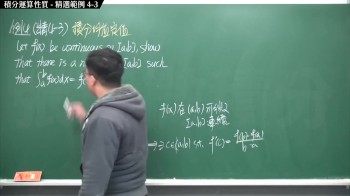 積分運算性質 - 精選範例 4-3
(精4-3) 積分的均值定值
Let f(x) be continuous on [a,b], show
that there is a n such
that ∫ f(x)dx = f
f(x) 在 (a,b) 可微
[a,b] 連續
⇒ ∃ c∈(a,b) s.t. f'(c) = f(b)-f(a)
b-a